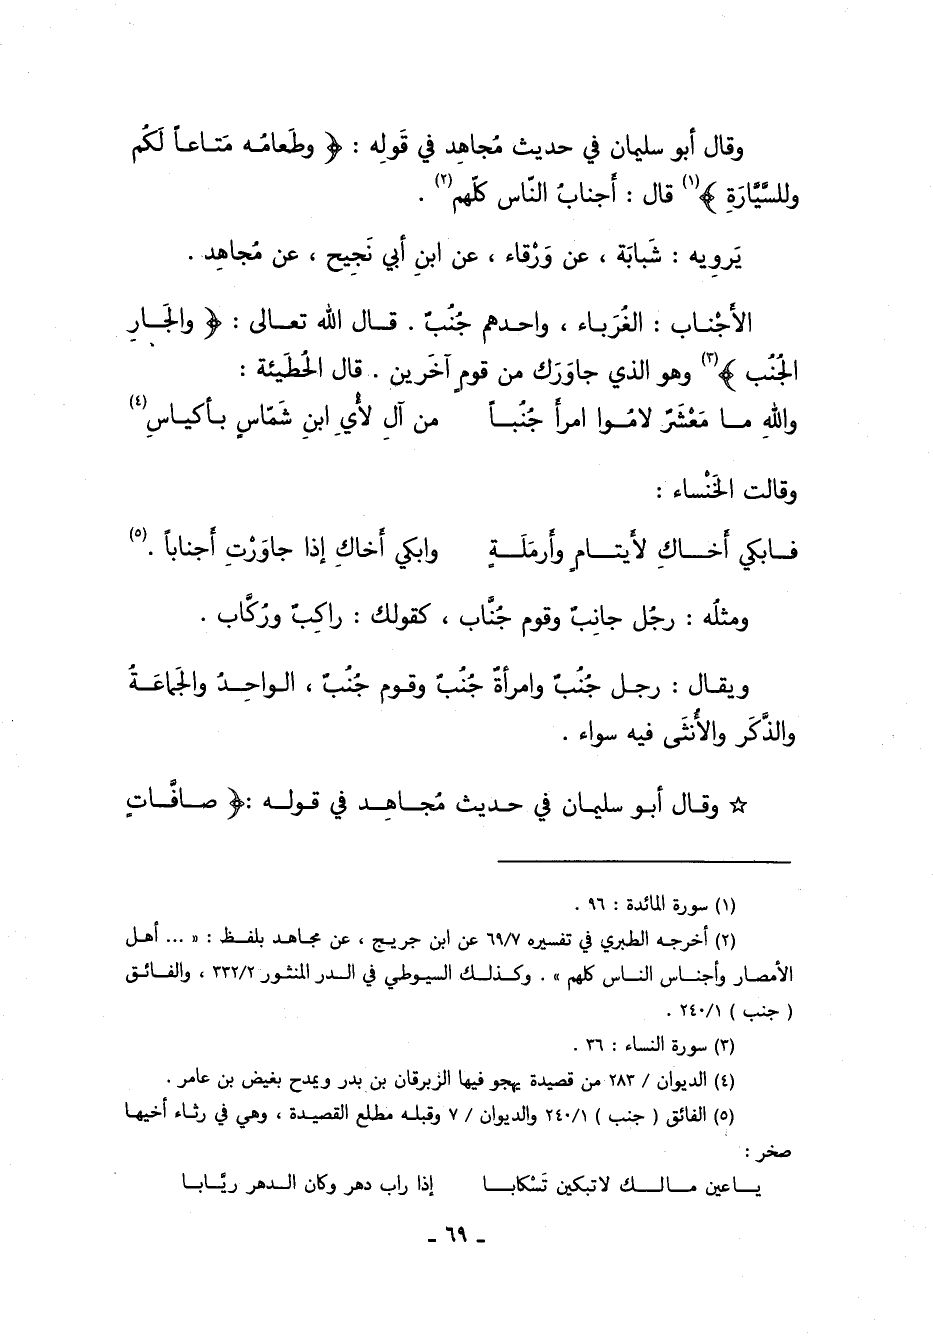 وقال أبو سليمان في حديث مُجاهِد في قَولِه : ﴿ وطَعامُـه مَتـاعـاً لَكُم
وللسَّيَّارَةِ ﴾(١) قال : أَجنابُ النّاس كلّهم(٢) .
يَرويه : شَبابَة ، عن وَرْقاء ، عن ابنِ أبي نَجيح ، عن مُجاهِد .
الأَجْناب : الغُرَباء ، واحـدهم جُنُبٌ . قـال الله تعـالى : ﴿ والجَـارِ
الجُنُب ﴾(٣) وهو الذي جاوَرَك من قومٍ آخَرين . قال الحُطَيئة :
واللهِ مـا مَعْشَرٌ لامُـوا امرأً جُنُبـاً من آلِ لأْيِ ابنِ شَمّاسٍ بـأكيـاسِ(٤)
وقالت الخَنْساء :
فـابكي أخـاكِ لأيتـامٍ وأرمَلَـةٍ وابكي أخاكِ إذا جاوَرْتِ أجناباً .(٥)
ومثلُه : رجُل جانِبٌ وقوم جُنَّاب ، كقولك : راكِبٌ ورُكَّاب .
ويقـال : رجـل جُنُبٌ وامرأةٌ جُنُبٌ وقـوم جُنُبٌ ، الـواحِـدُ والجَماعَـةُ
والذَّكَر والأُنثَى فيه سواء .
☆ وقـال أبـو سليمـان في حـديث مُجـاهِـد في قـولـه :﴿ صـافَّـاتٍ
(١) سورة المائدة : ٩٦ .
(٢) أخرجـه الطبري في تفسيره ٦٩/٧ عن ابن جريـج ، عن مجـاهـد بلفـظ : « ... أهـل
الأمصـار وأجنـاس النـاس كلهم » . وكـذلـك السيـوطي في الـدر المنثـور ٣٣٢/٢ ، والفـائـق
( جنب ) ٢٤٠/١ .
(٣) سورة النساء : ٣٦ .
(٤) الديوان / ٢٨٣ من قصيدة يهجو فيها الزبرقان بن بدر ويمدح بغيض بن عامر .
(٥) الفائق ( جنب ) ٢٤٠/١ والديوان / ٧ وقبلـه مطلع القصيـدة ، وهي في رثـاء أخيهـا
صخر :
يـاعين مـالـك لاتبكين تَسْكابـا إذا راب دهر وكان الـدهر ريَّـابـا
ـ ٦٩ ـ